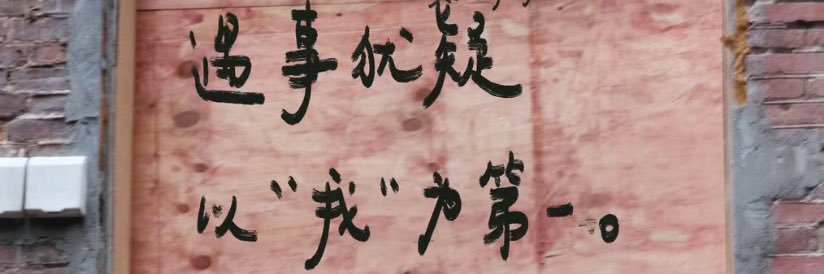 遇事犹疑
以“我”为第一。